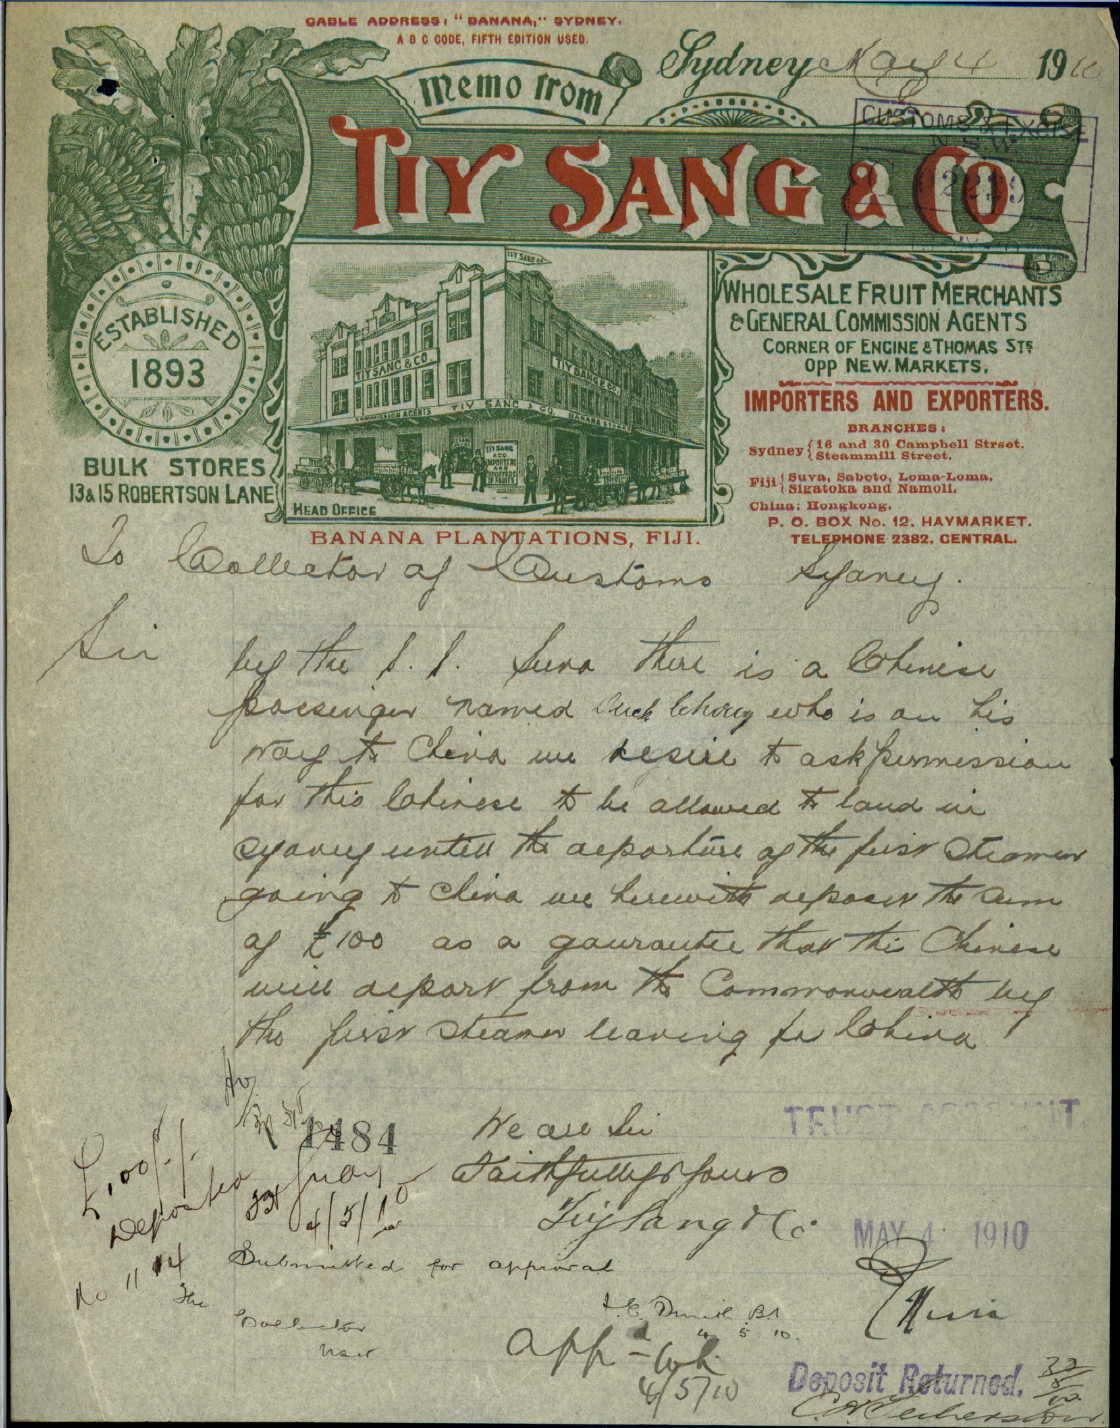 CABLE ADDRESS: "BANANA," SYDNEY.
A B C CODE, FIFTH EDITION USED.
Memo from
Sydney May 4 1910
CUSTOMS & EXCISE
TIY SANG & CO
ESTABLISHED
1893
BULK STORES
13 & 15 ROBERTSON LANE
TIY SANG & CO.
COMMISSION AGENTS TIY SANG & CO. BANANA
HEAD OFFICE
WHOLESALE FRUIT MERCHANTS
& GENERAL COMMISSION AGENTS
CORNER OF ENGINE & THOMAS STS
OPP NEW. MARKETS.
IMPORTERS AND EXPORTERS.
BRANCHES:
Sydney { 16 and 30 Campbell Street.
Steammill Street.
Fiji { Suva, Saboto, Loma-Loma,
Sigatoka and Namoli.
China: Hongkong.
P. O. BOX No. 12, HAYMARKET.
TELEPHONE 2382, CENTRAL.
BANANA PLANTATIONS, FIJI.
To Collector of Customs Sydney.
Sir
by the S. S. Suva there is a Chinese
passenger named Chong who is on his
way to China we desire to ask permission
for this Chinese to be allowed to land in
Sydney untell the departure of the first steamer
going to China we herewith deposit the sum
of £100 as a gaurantee that this Chinese
will depart from the Commonwealth by
the first steamer leaving for China
1484
We are Sir
Faithfully Yours
Tiy Sang & Co
TRUST ACCOUNT.
£100/-/-
Deposited
4/5/10
MAY 4 1910
Submitted for approval
The
Collector
NSW
4 5 10.
App
4/5/10
Deposit Returned.